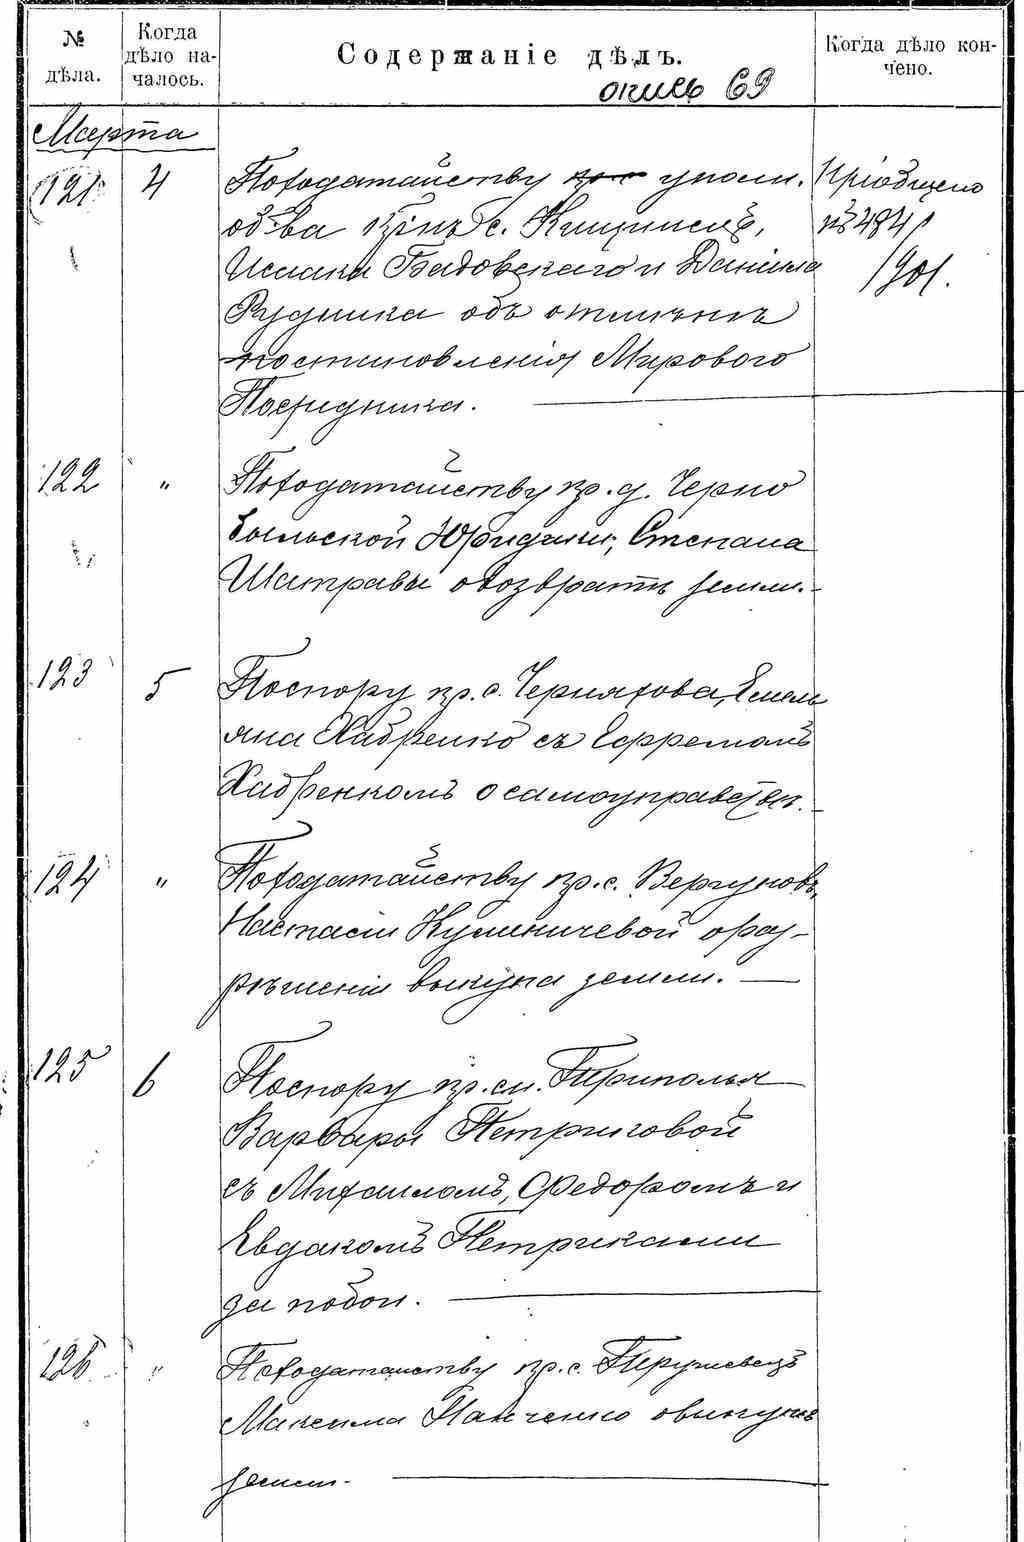 № дѣла.
Когда дѣло началось.
Содержаніе дѣлъ.
Когда дѣло кончено.
опись 69
Марта
121 4 По ходатайству уполн. Пріобщено
об-ва с. къ № 484
Исаака Бадовскаго и Даніила /901.
Рудника объ отмѣнѣ
постановленія Мирового
Посредника.
122 " По ходатайству кр. д. Черно
быльской Юридики, Степана
Шатравы о возвратѣ земли.
123 5 По спору кр. с. Черняхова, Емель
яна Хабренко съ Ефремомъ
Хабренкомъ о самоуправствѣ.
124 " По ходатайству кр. с. Вергуновъ,
Настасіи Кулиничевой о раз-
рѣшеніи выкупа земли.
125 6 По спору кр. см. Триполья
Варвары Петриковой
съ Михаиломъ, Федоромъ и
Евдакомъ Петриками
за побои.
126 " По ходатайству кр. с.
Максима Панченко о выкупѣ
земли.